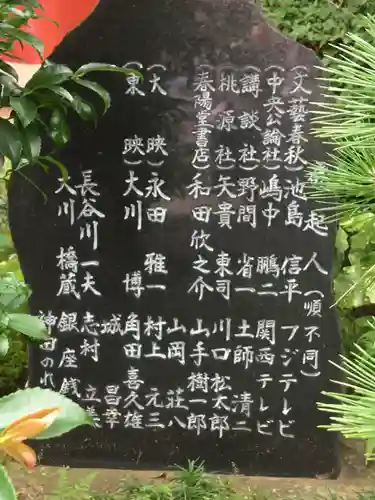 起人(順不同)
(文藝春秋)池島 信平 フジテレビ
(中央公論社)嶋中 鵬二 関西テレビ
(講談社)野間 省一 土師 清二
(桃源社)矢貴 東司 川口 松太郎
(春陽堂書店)和田欣之介 山手 樹一郎
山岡 荘八
(大 映)永田 雅一 村上 元三
(東 映)大川 博 角田 喜久雄
城 昌幸
長谷川 一夫 志村 立美
大川 橋蔵 銀座銭
神田のれ